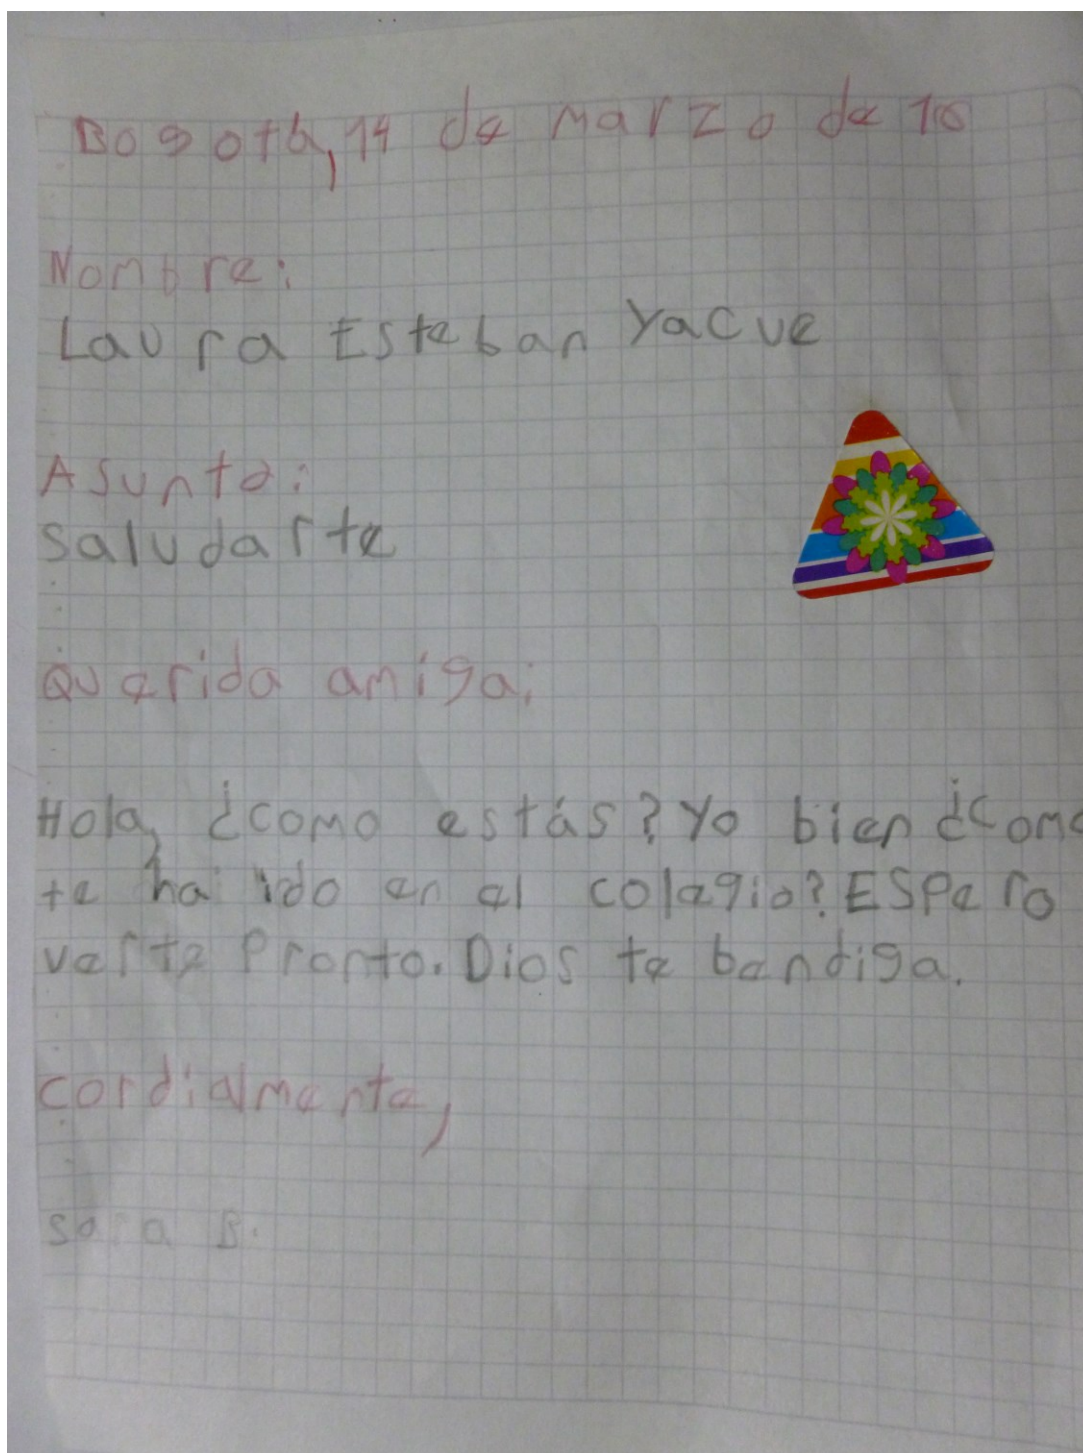 Bogotá, 14 de Marzo de
Nombre:
Laura Esteban Yacue
Asunto:
saludarte
Querida amiga:
Hola, ¿como estás? Yo bien ¿como
te ha ido en el colegio? ESPero
verte Pronto. Dios te bendiga.
cordialmente,
sara B.